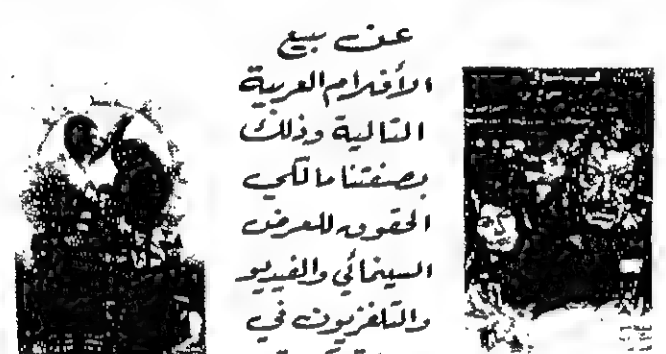 عن بيع
الأفلام العربية
التالية وذلك
بصفتنا مالكي
الحقوق للعرض
السينمائي والفيديو
والتلفزيون في